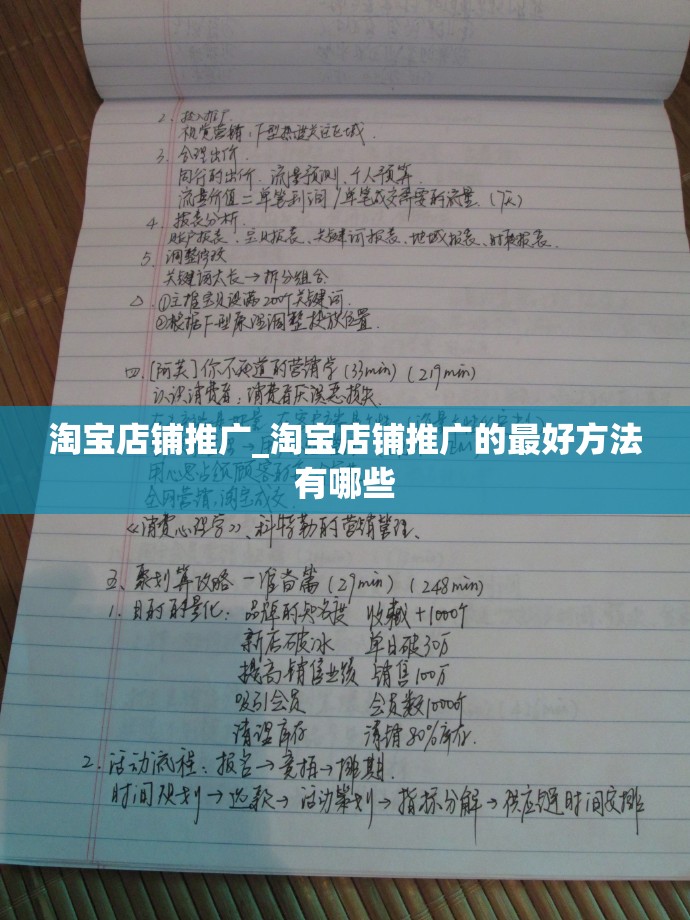 2. 投入推广
视觉营销：F型热进关注区域.
3. 合理出价.
同行的出价、流量预测、个人预算.
流量价值=单笔利润/单笔成交需要的流量.(7天)
4. 报表分析.
账户报表、宝贝报表、关键词报表、地域报表、时段报表.
5. 调整修改
关键词太长→拆分组合
△ ①主推宝贝设满200个关键词.
②根据F型原理调整投放位置.
四.[阿芙]你不知道的营销学(33min)(219min)
认识消费者：消费者厌误恶损失.
淘宝店铺推广_淘宝店铺推广的最好方法
有哪些
用心思占领顾客
全网营销,淘宝成交.
《消费心理学》、科特勒的营销管理、
五、聚划算攻略—准备篇(29min)(248min)
1. 目的的量化：品牌的知名度 收藏+1000个
新店破冰 单日破30万
提高销售业绩 销售100万
吸引会员 会员数10000个
清理库存 清销80%库存.
2. 活动流程：报名→竞拍→排期.
时间规划→选款→活动策划→指标分解→供应链时间安排